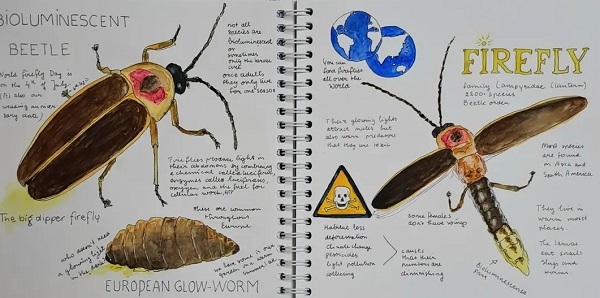 BIOLUMINESCENT
BEETLE
World Firefly Day is
on the 4th of July
(it's also our
wedding anniver
sary date)
not all
species are
bioluminescent
or
sometimes
only the larvae
are
once adults
they only live
for one season
Fireflies produce light in
their abdomens by combining
a chemical called luciferin,
enzymes called luciferases,
oxygen and the fuel for
cellular work, ATP
The big dipper firefly
these are common
throughout
Europe
who doesn't need
a glowing light
in the
we have some in our
garden on a warm
summer
EUROPEAN GLOW-WORM
You can
find fireflies
all over the
World
FIREFLY
family Lampyridae (lantern)
2200+ species
Beetle order
Their glowing lights
attract mates but
also warn predators
that they are toxic
Most species
are found
in Asia and
South America
They live
in warm
moist
places.
The larvae
eat snails
slugs and
worms.
some females
don't have wings
Habitat loss
deforestation
climate change
pesticides
light pollution
collecting
causes
that their
numbers are
diminishing
Bioluminescence